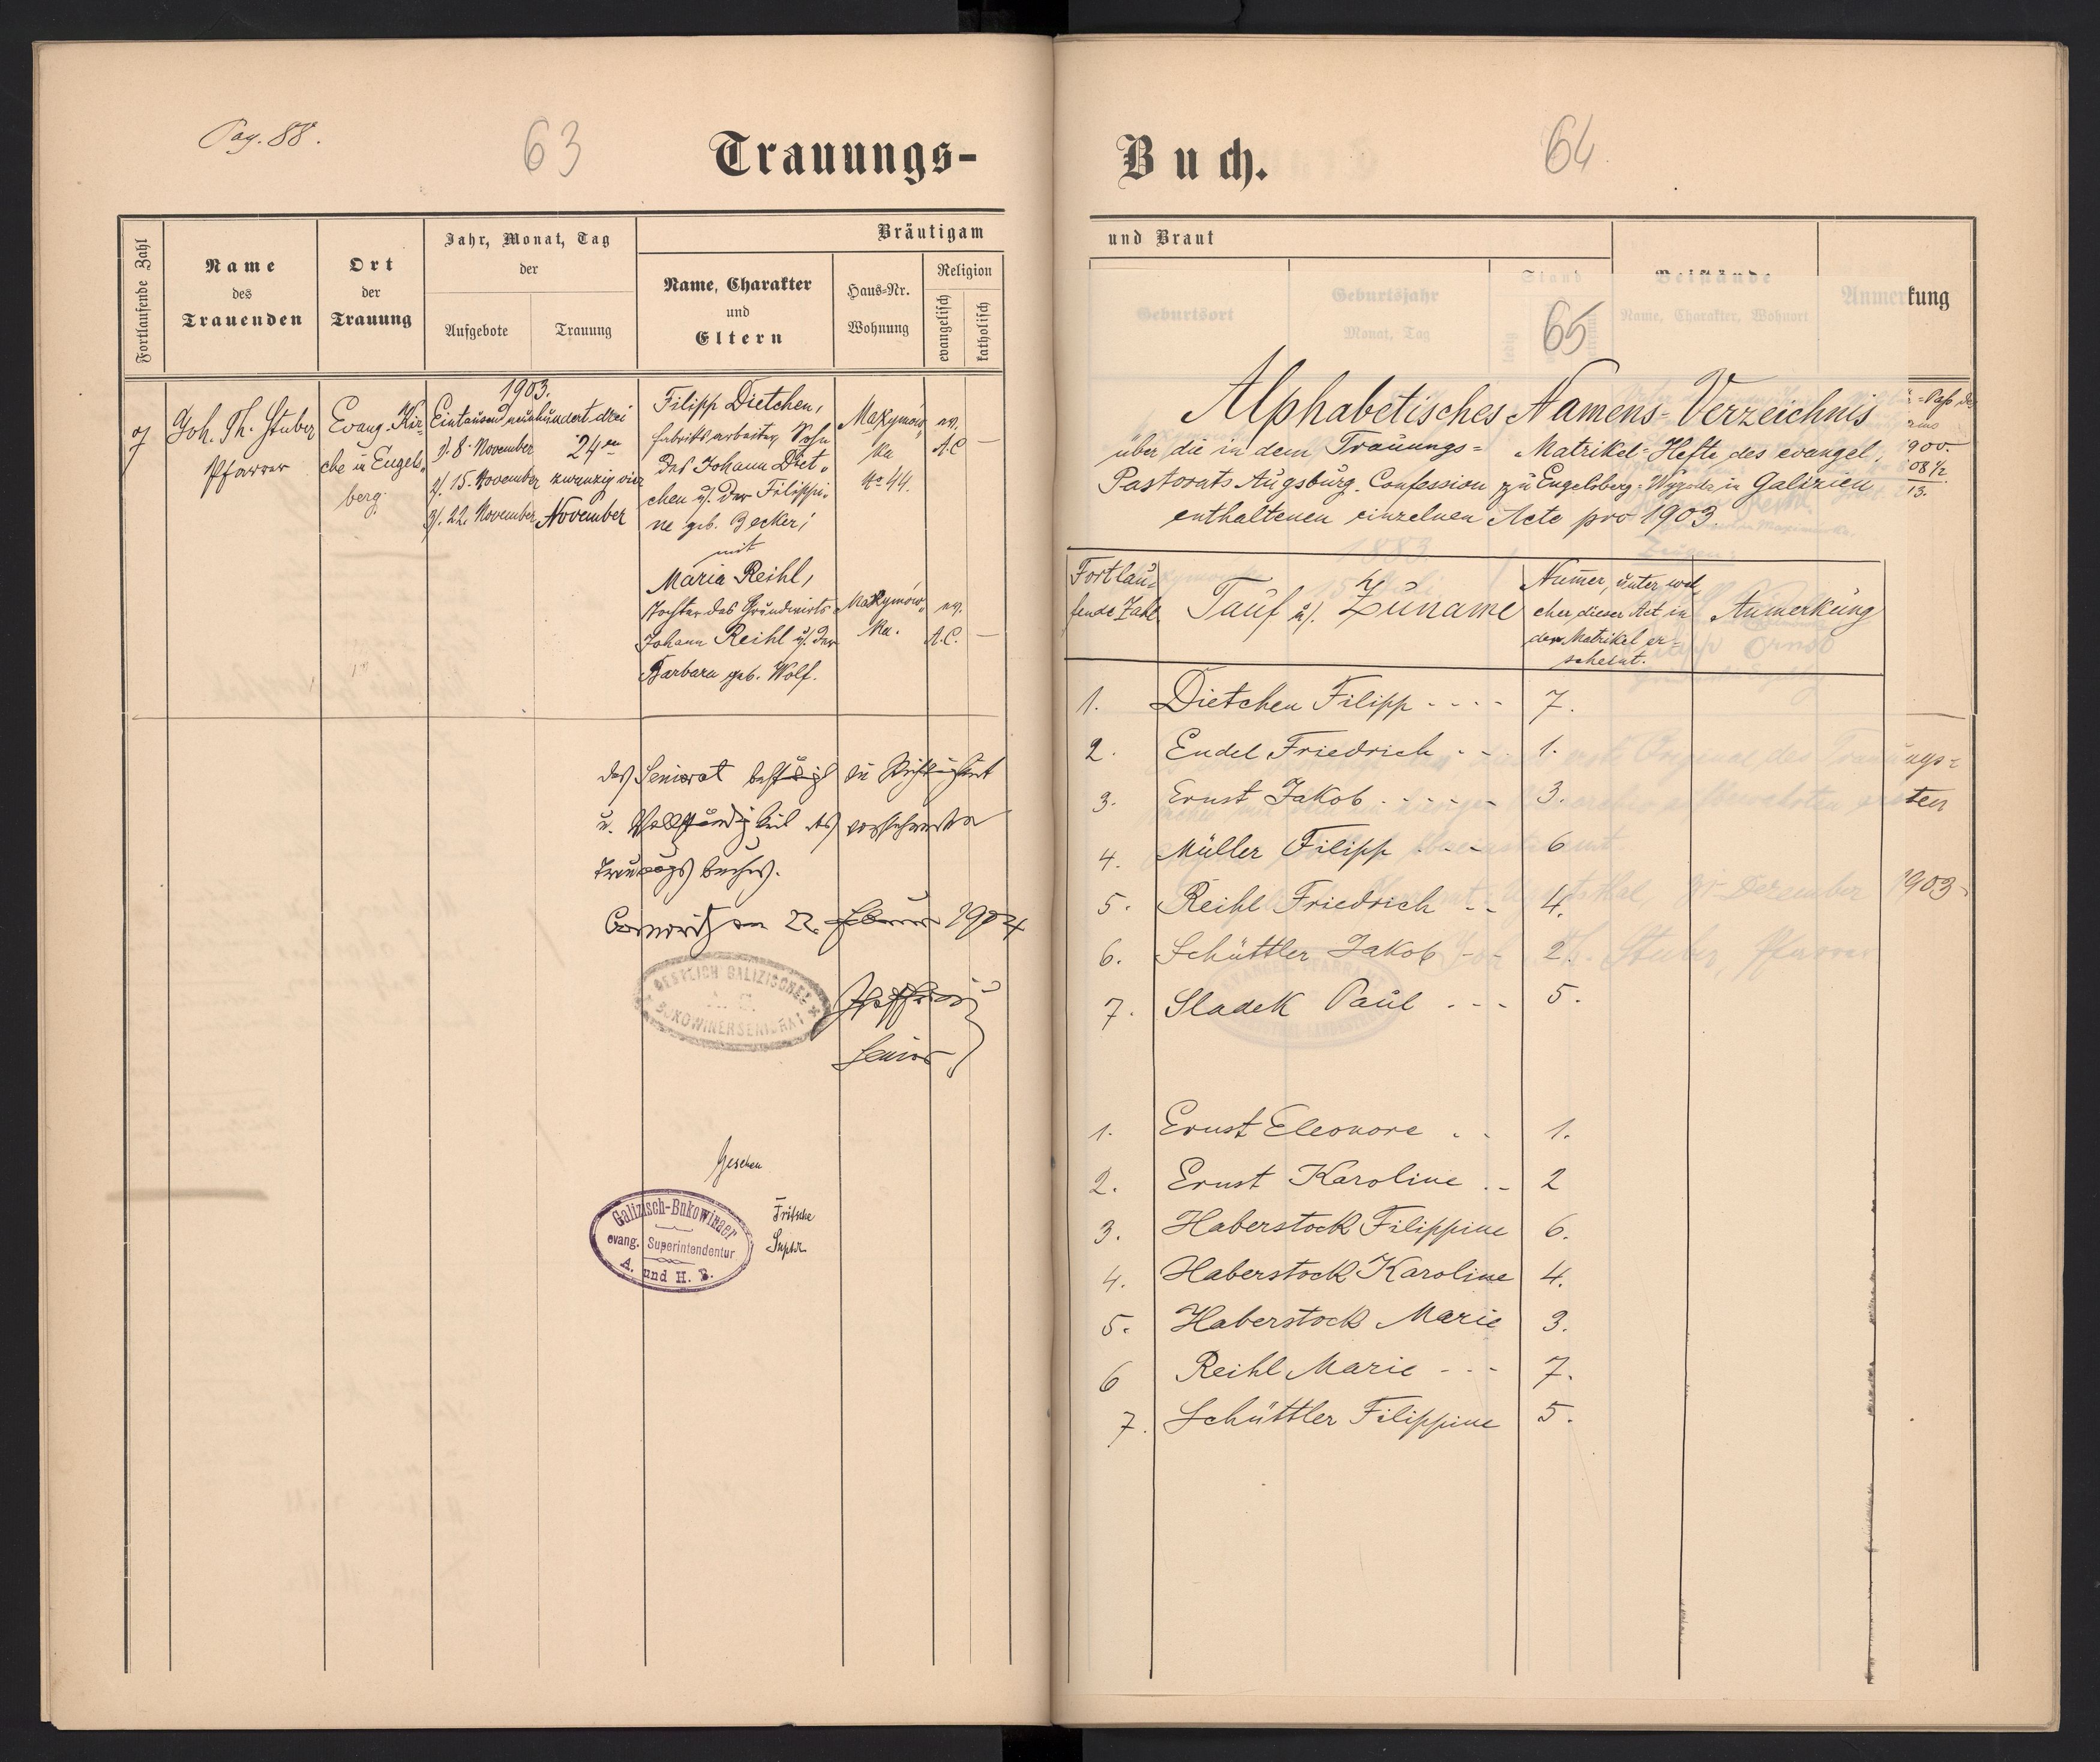 Pag. 88.
63
Trauungs-
Fortlaufende Zahl
Name
des
Trauenden
Ort
der
Trauung
Jahr, Monat, Tag
der
Aufgebote
Trauung
Bräutigam
Name, Charakter
und
Eltern
Haus-Nr.
Wohnung
Religion
evangelisch
katholisch
7
Joh. Th. Stuber
Pfarrer
Evang. Kir-
che in Engels-
berg.
1903.
Eintausend neunhundert drei
1/. 8. November
2/. 15. November
3/. 22. November
24en
zwanzig vier
November
Filipp Dietchen,
Fabriksarbeiter, Sohn
des Johann Diet-
chen u/. der Filippi-
ne geb. Becker;
mit
Maria Reihl,
Tochter des Grundwirts
Johann Reihl u/. der
Barbara geb. Wolf.
Maxymów-
ka
No 44.
ev.
A.C.
—
Maxymów-
ka.
ev.
A.C.
—
Das Seniorat bestätigt die Richtigkeit
u. Vollständigkeit des vorstehenden
Trauungsbuches.
am 22. 1904
OESTLICH GALIZISCHES
A. C.
BUKOWINERSENIORAT
Senior
Gesehen
Galizisch-Bukowinaer
evang. Superintendentur
A. und H. B.
Fritsche
Suptdt.
Buch.
64
und Braut
Geburtsort
Geburtsjahr
Monat, Tag
Stand
ledig
Beistände
Name, Charakter, Wohnort
Anmerkung
65
Alphabetisches Namens-Verzeichnis
über die in dem Trauungs- Matrikel-Hefte des evangel.
Pastorats Augsburg. Confession zu Engelsberg-Wygoda in Galizien
enthaltenen einzelnen Acte pro 1903.
900.
08 1/2
13.
Fortlau-
fende Zahl
Tauf u/. Zuname
Numer, unter wel-
cher dieser Act in
der Matrikel er-
scheint.
Anmerkung
1. Dietchen Filipp - - - - 7.
2. Endel Friedrich - - 1.
3. Ernst Jakob - - - - - 3.
4. Müller Filipp - - - 6
5. Reihl Friedrich - - 4.
6. Schüttler Jakob - - 2.
7. Sladek Paul - - - 5.
ungs-
ten
1903-
1. Ernst Eleonore - - 1.
2. Ernst Karoline - - 2
3. Haberstock Filippine 6.
4. Haberstock Karoline 4.
5. Haberstock Marie 3.
6 Reihl Marie - - - 7.
7. Schüttler Filippine 5.